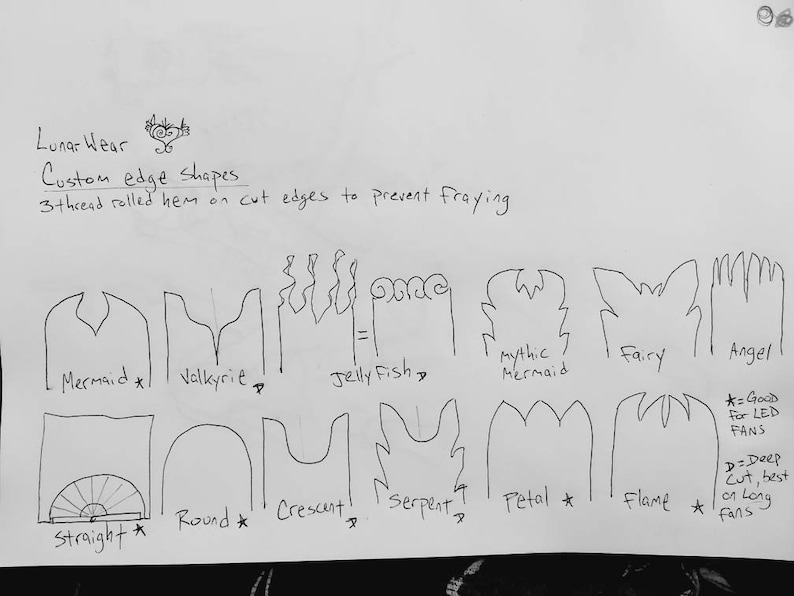 Lunar Wear
Custom edge shapes
3 thread rolled hem on cut edges to prevent fraying
Mermaid ★
Valkyrie D
=
Jellyfish D
Mythic
Mermaid
Fairy
Angel
★ = Good
for LED
FANS
D = Deep
Cut, best
on Long
fans
Straight ★
Round ★
Crescent D
Serpent D
Petal ★
Flame ★